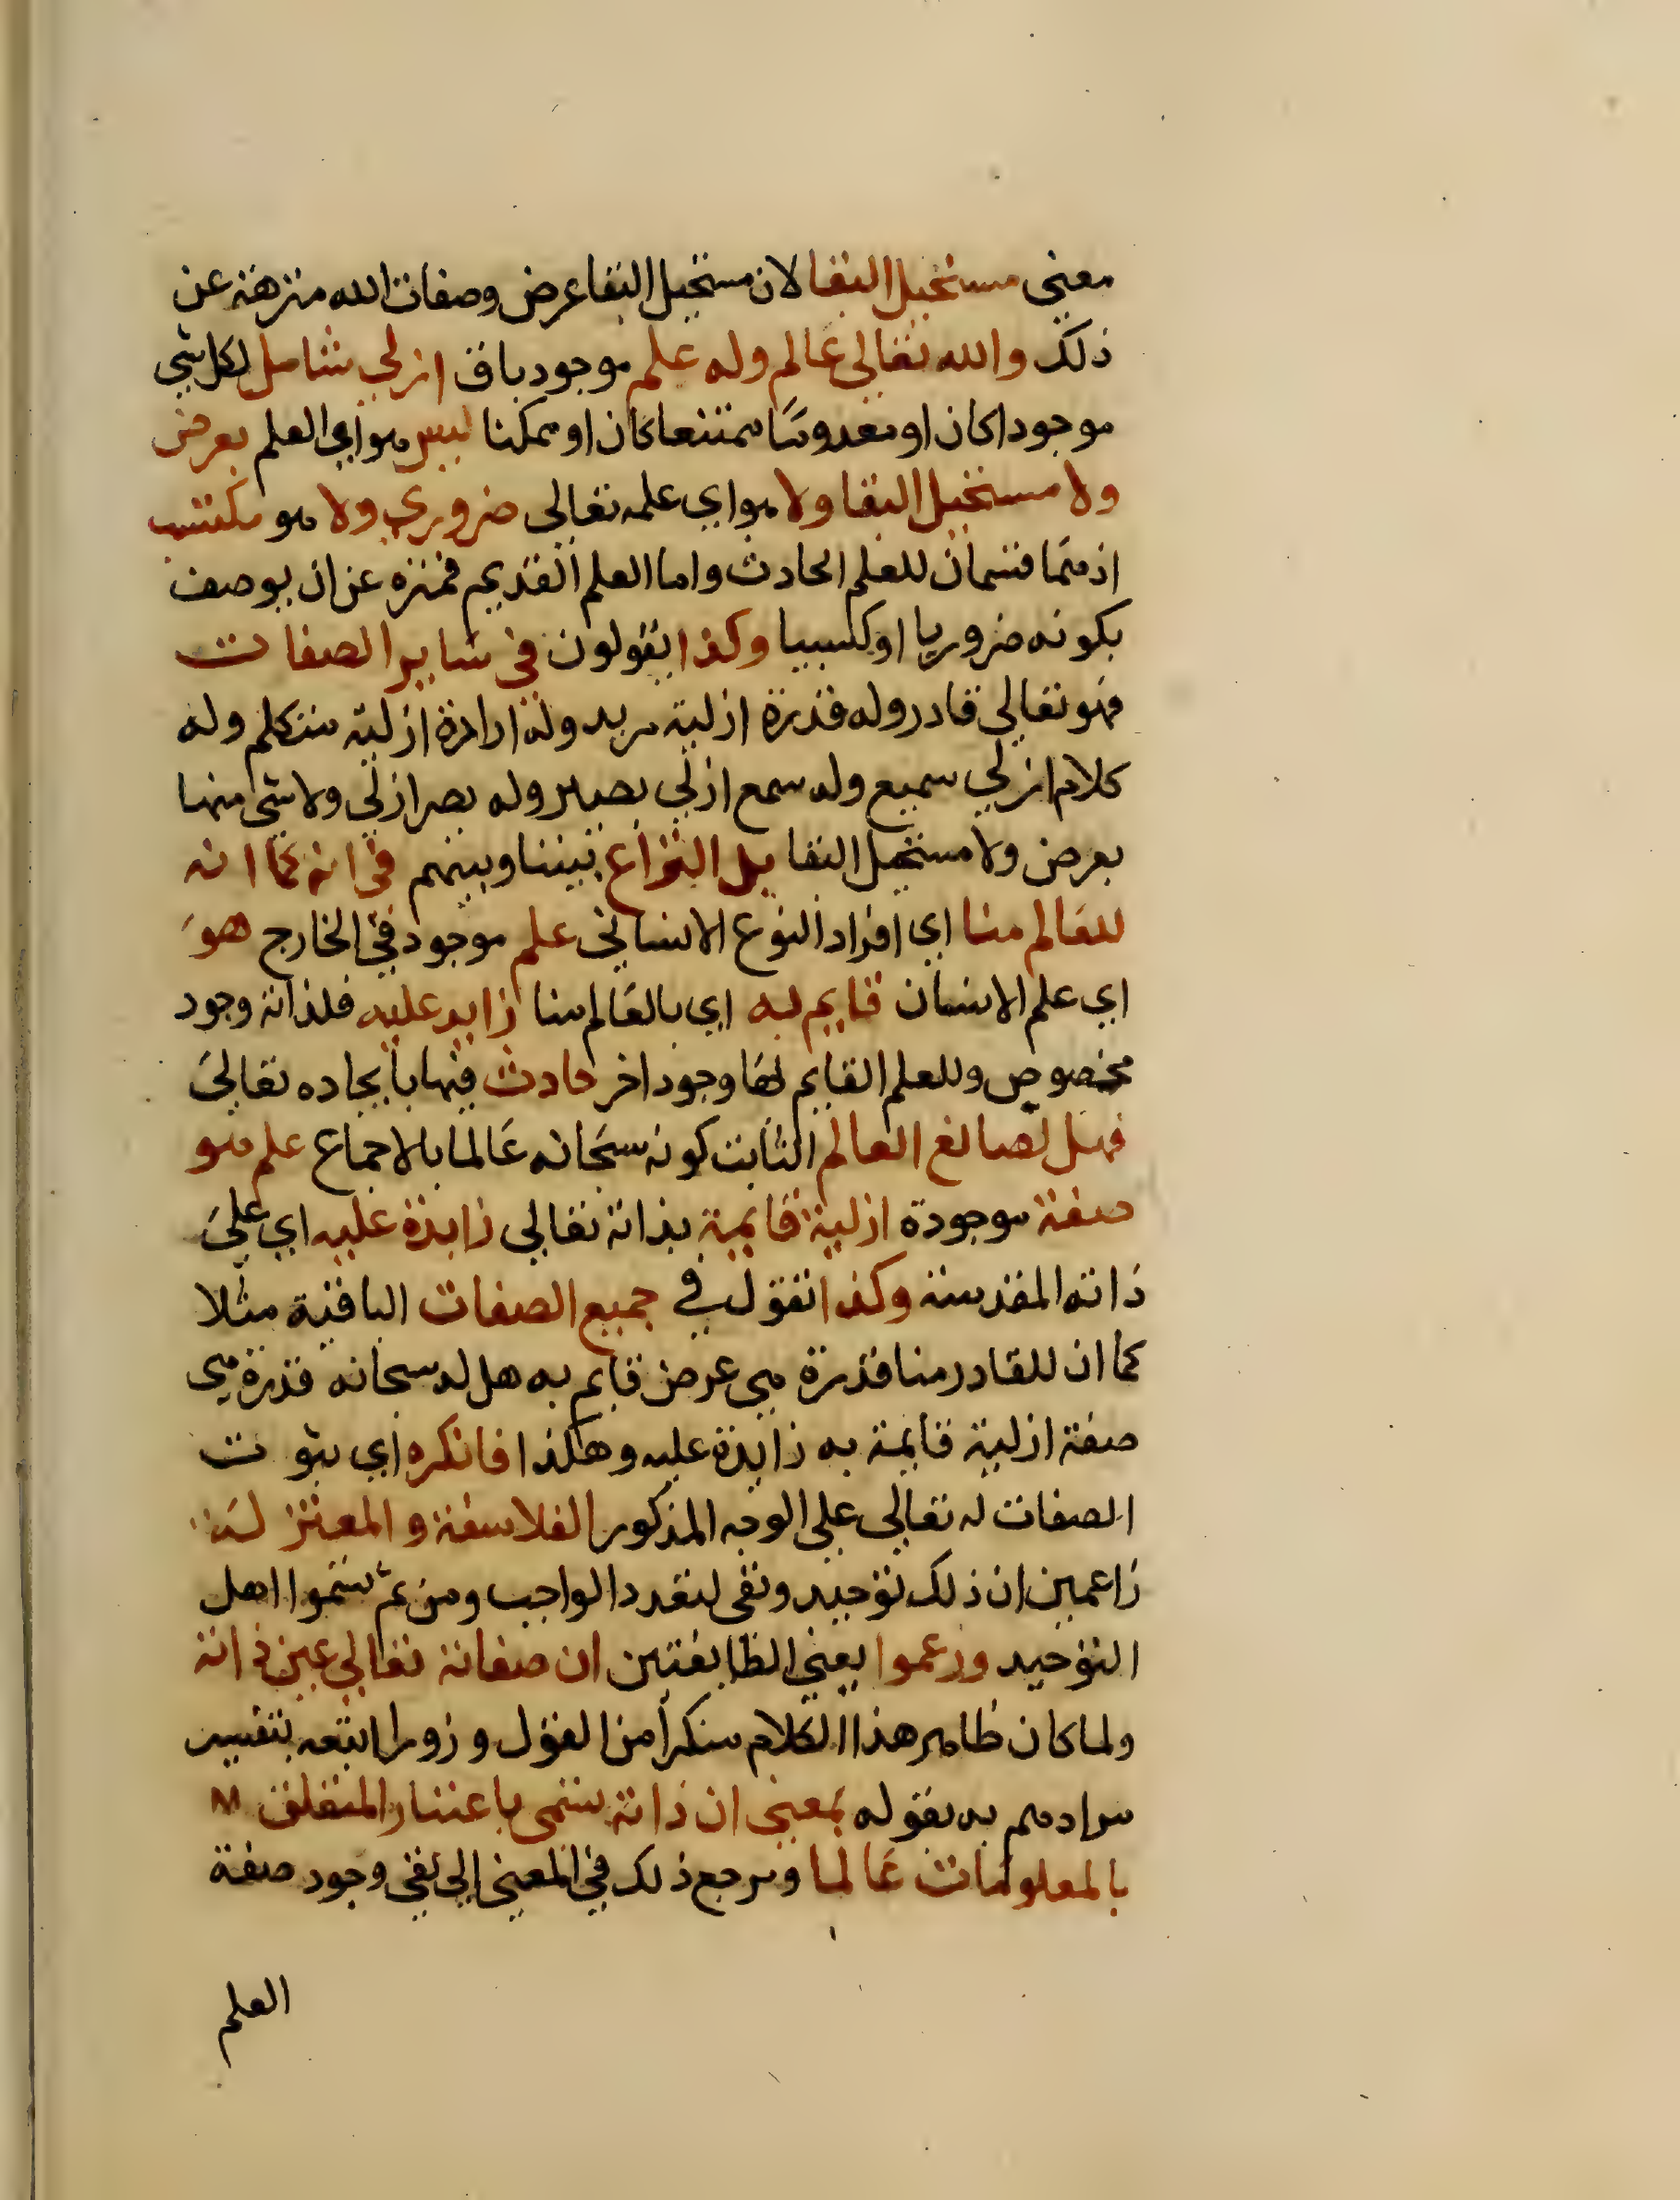 معنى مستحيل البقا لان مستحيل البقا عرض وصفات الله منزهة عن
ذلك والله تعالى عالم وله علم موجود باق ازلي شامل لكل شي
موجودا كان او معدوما ممتنعا كان او ممكنا ليس هو اي العلم بعرض
ولا مستحيل البقا ولا هو اي علمه تعالى ضروري ولا هو مكتسب
اذ هما قسمان للعلم الحادث واما العلم القديم فمنزه عن ان يوصف
بكونه ضروريا او كسبيا وكذا يقولون في ساير الصفات
فهو تعالى قادر وله قدرة ازلية مريد وله ارادة ازلية متكلم وله
كلام ازلي سميع وله سمع ازلي بصير وله بصر ازلي ولا شي منها
بعرض ولا مستحيل البقا بل النزاع بيننا وبينهم في انه كما انه
للعالم منا اي افراد النوع الانساني علم موجود في الخارج هو
اي علم الانسان قايم به اي بالعالم منا زايد عليه فلذاته وجود
مخصوص وللعلم القايم لها وجود اخر حادث فيها بايجاده تعالى
فهل لصانع العالم الثابت كونه سبحانه عالما بالاجماع علم هو
صفة موجودة ازلية قايمة بذاته تعالى زايدة عليه اي على
ذاته المقدسة وكذا نقول في جميع الصفات الباقية مثلا
كما ان للقادر منا قدرة هي عرض قايم به هل له سبحانه قدرة هي
صفة ازلية قايمة به زايدة عليه وهكذا فانكره اي ثبوت
الصفات له تعالى على الوجه المذكور الفلاسفة والمعتزلة
زاعمين ان ذلك توحيد ونفى لتعدد الواجب ومن ثم سموا اهل
التوحيد وزعموا يعني الطايفتين ان صفاته تعالى عين ذاته
ولما كان ظاهر هذا الكلام منكرا من القول وزورا اتبعه بتفسير
مرادهم به بقوله بمعنى ان ذاته تسمى باعتبار المتعلق
بالمعلومات عالما ومرجع ذلك في المعنى الى نفي وجود صفة
العلم